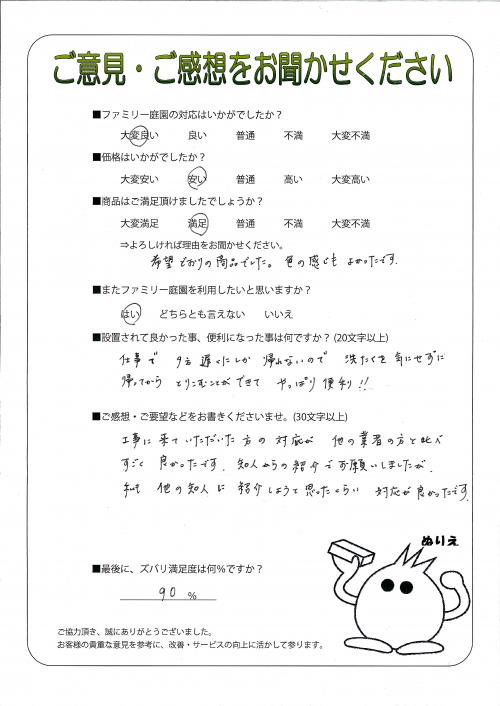 ご意見・ご感想をお聞かせください
■ファミリー庭園の対応はいかがでしたか？
大変良い 良い 普通 不満 大変不満
■価格はいかがでしたか？
大変安い 安い 普通 高い 大変高い
■商品はご満足頂けましたでしょうか？
大変満足 満足 普通 不満 大変不満
⇒よろしければ理由をお聞かせください。
希望どおりの商品でした。色の感じも よかったです.
■またファミリー庭園を利用したいと思いますか？
はい どちらとも言えない いいえ
■設置されて良かった事、便利になった事は何ですか？(20文字以上)
仕事で 夕方 遅くにしか 帰れないので 洗たくを気にせずに
帰ってから とりこむことができて やっぱり便利!!
■ご感想・ご要望などをお書きくださいませ。(30文字以上)
工事に来ていただいた方の対応が 他の業者の方と比べ
すごく 良かったです. 知人からの紹介でお願いしましたが.
私も 他の知人に 紹介しようと思ったくらい 対応が良かったです.
ぬりえ
■最後に、ズバリ満足度は何%ですか？
90 %
ご協力頂き、誠にありがとうございました。
お客様の貴重な意見を参考に、改善・サービスの向上に活かして参ります。